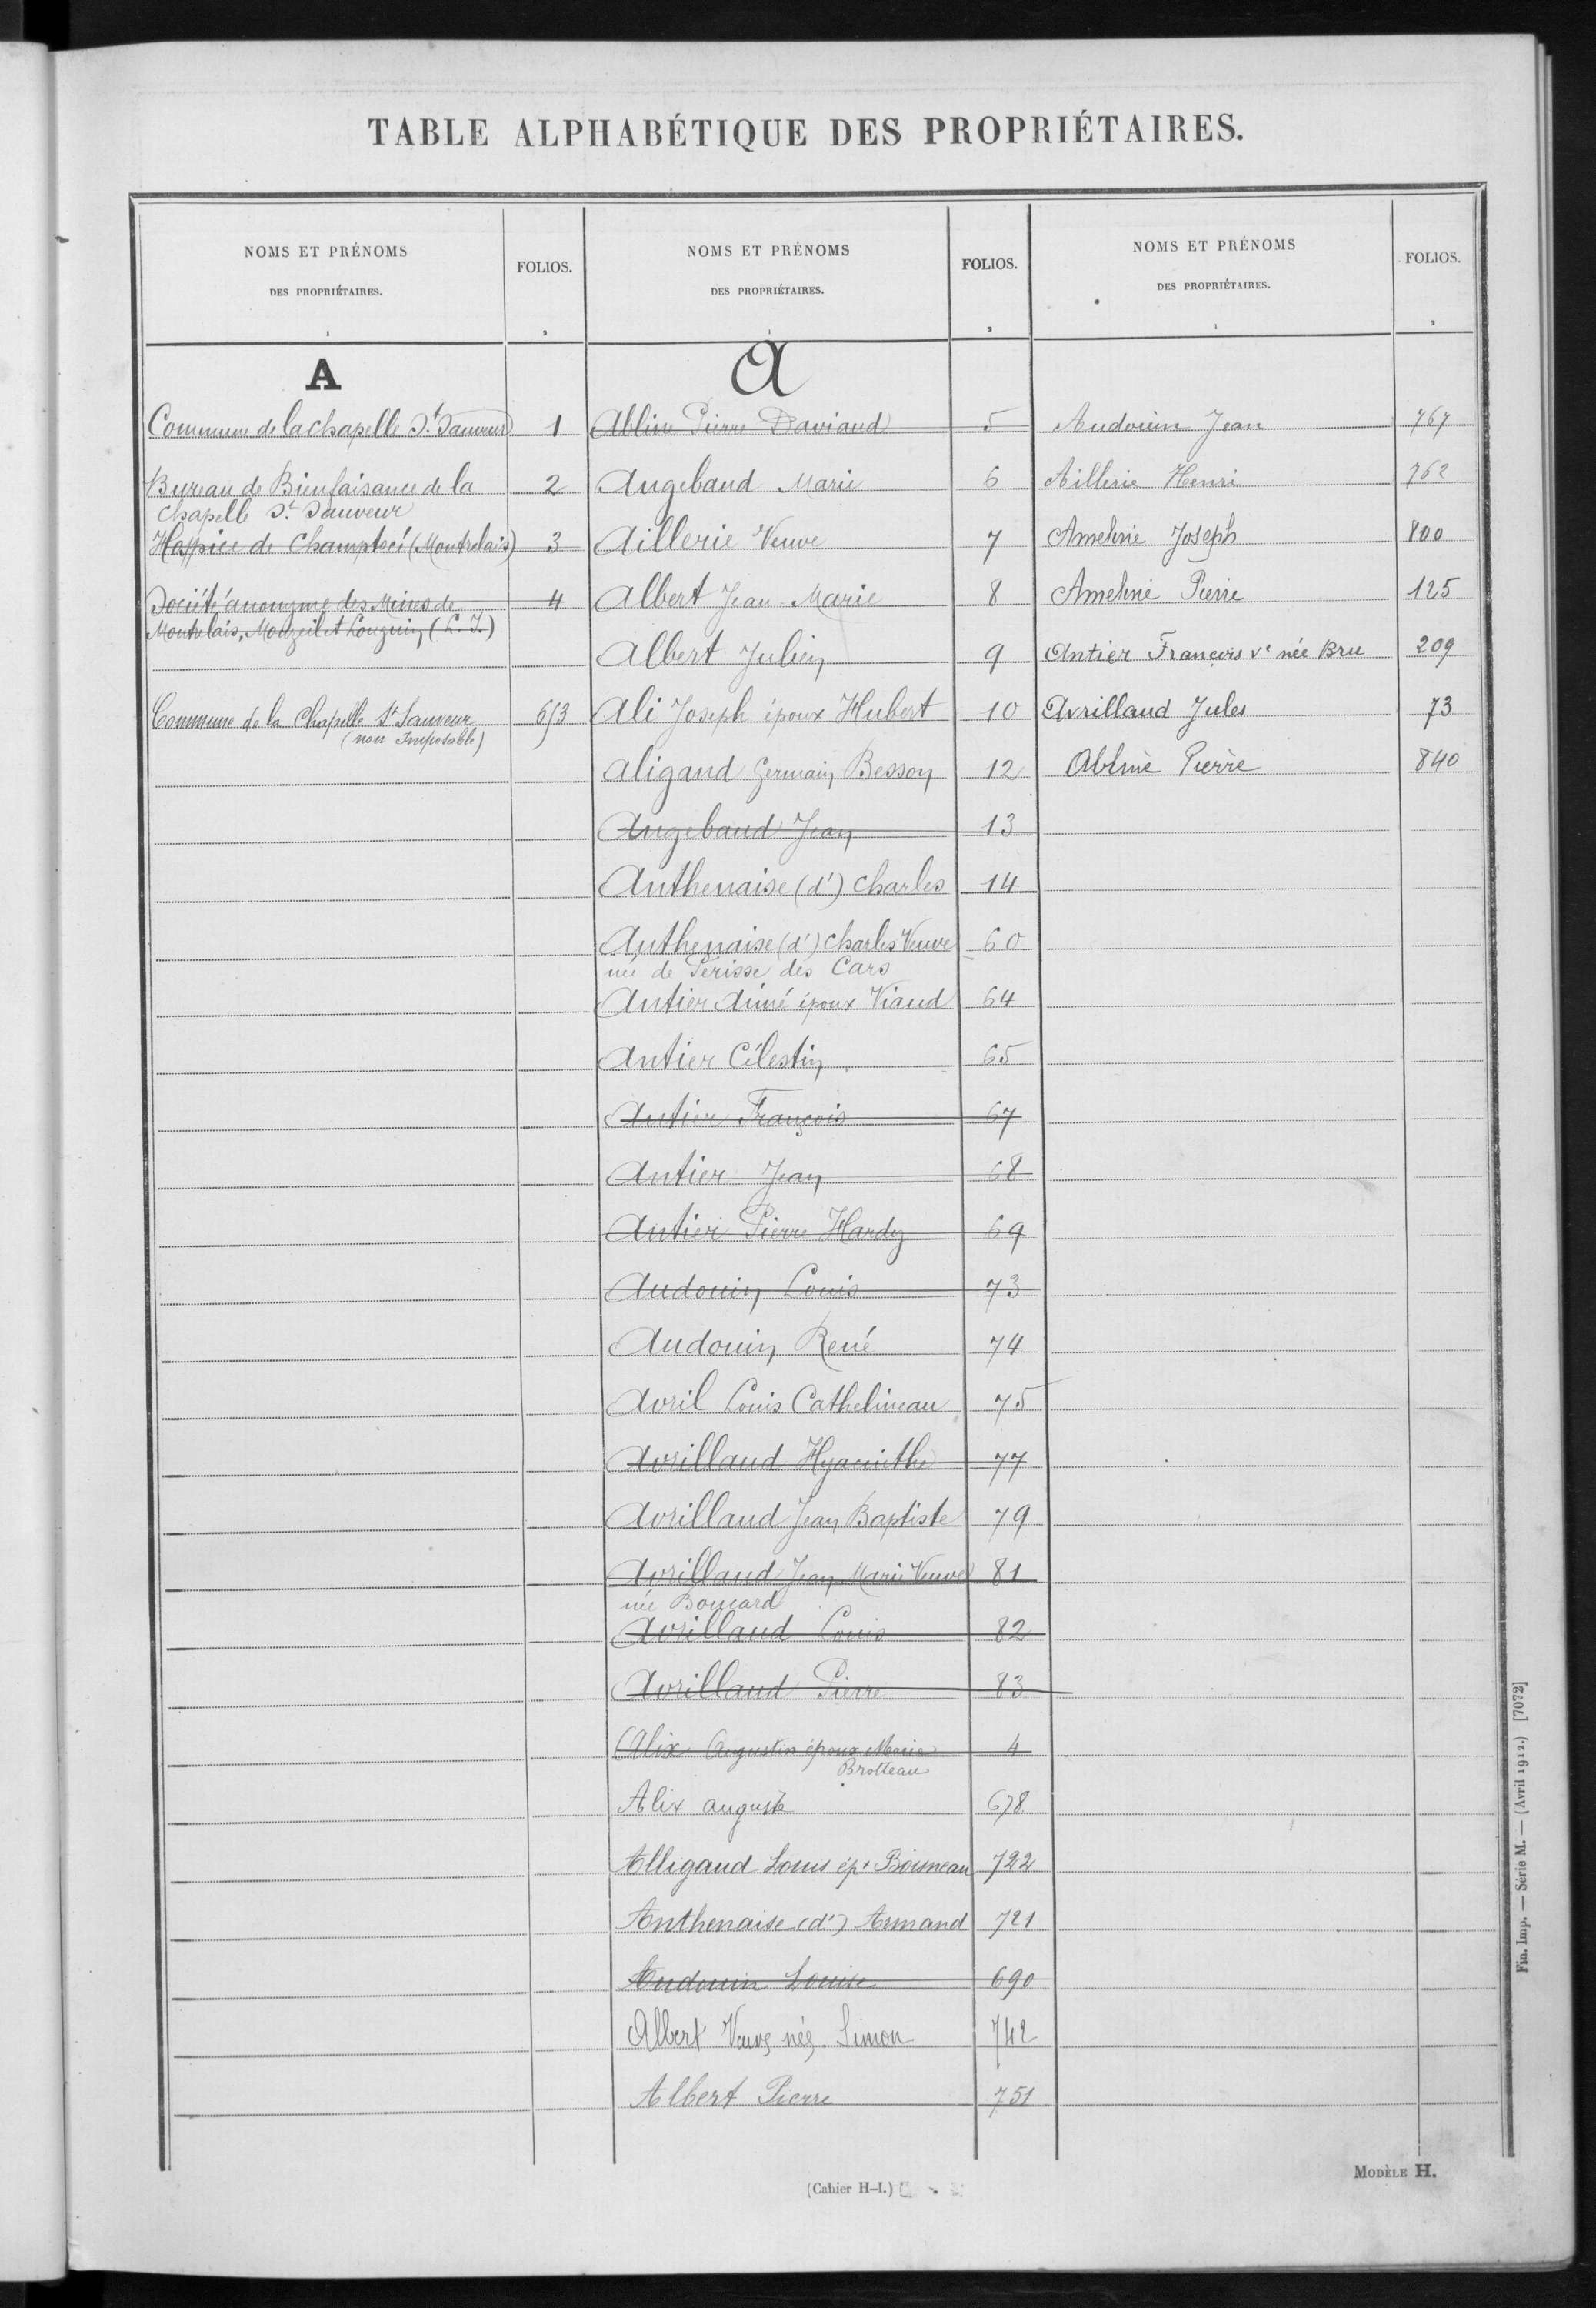 TABLE ALPHABÉTIQUE DES PROPRIÉTAIRES.
NOMS ET PRÉNOMS
DES PROPRIÉTAIRES.
1
FOLIOS.
2
A
Commune de la chapelle St Sauveur 1
Bureau de Bienfaisance de la 2
chapelle St Sauveur
Hospice de Champtocé (Montrelais) 3
Société anonyme des Mines de 4
Montrelais, Mouzeil et Languin (L. I.)
Commune de la Chapelle St Sauveur 653
(non Imposable)
NOMS ET PRÉNOMS
DES PROPRIÉTAIRES.
1
FOLIOS.
2
A
Abline Pierre Daviaud 5
Angebaud Marie 6
Aillerie Veuve 7
Albert Jean Marie 8
Albert Julien 9
Ali Joseph époux Hubert 10
Aligand Germain Besson 12
Angebaud Jean 13
Anthenaise (d') Charles 14
Anthenaise (d') Charles Veuve 60
née de Périsse des Cars
Antier Aimé époux Viaud 64
Antier Célestin 65
Antier François 67
Antier Jean 68
Antier Pierre Hardy 69
Audouin Louis 73
Audouin René 74
Avril Louis Cathelineau 75
Avrillaud Hyacinthe 77
Avrillaud Jean Baptiste 79
Avrillaud Jean Marie Veuve 81
née Boucard
Avrillaud Louis 82
Avrillaud Pierre 83
Alix Augustin époux Marie 4
Brotteau
Alix auguste 678
Alligaud Louis épx Boismeau 722
Anthenaise (d') Armand 721
Audouin Louise 690
Albert Veuve née Simon 742
Albert Pierre 751
NOMS ET PRÉNOMS
DES PROPRIÉTAIRES.
1
FOLIOS.
2
Audouin Jean 767
Aillerie Henri 762
Ameline Joseph 800
Ameline Pierre 125
Antier François Ve née Bru 209
Avrillaud Jules 73
Abline Pierre 840
Fin. Imp. — Série M. — (Avril 1912.) [7072]
MODÈLE H.
(Cahier H-I.)